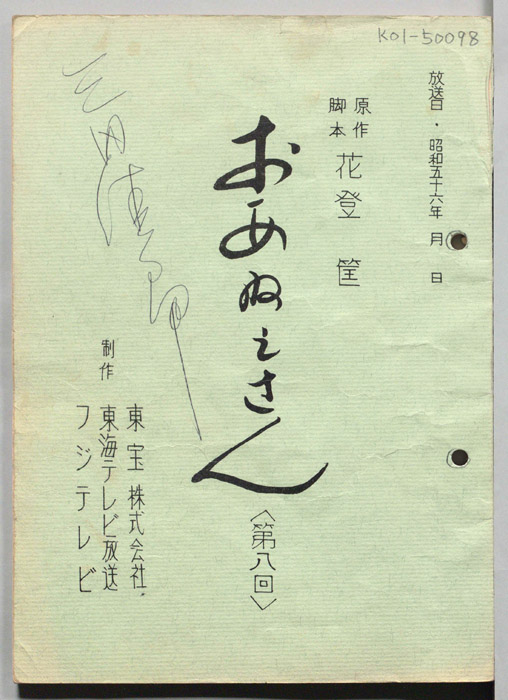 K01-50098
放送日・昭和五十六年 月 日
原作
脚本
花登筐
おあねえさん
〈第八回〉
制作
東宝株式会社・
東海テレビ放送
フジテレビ